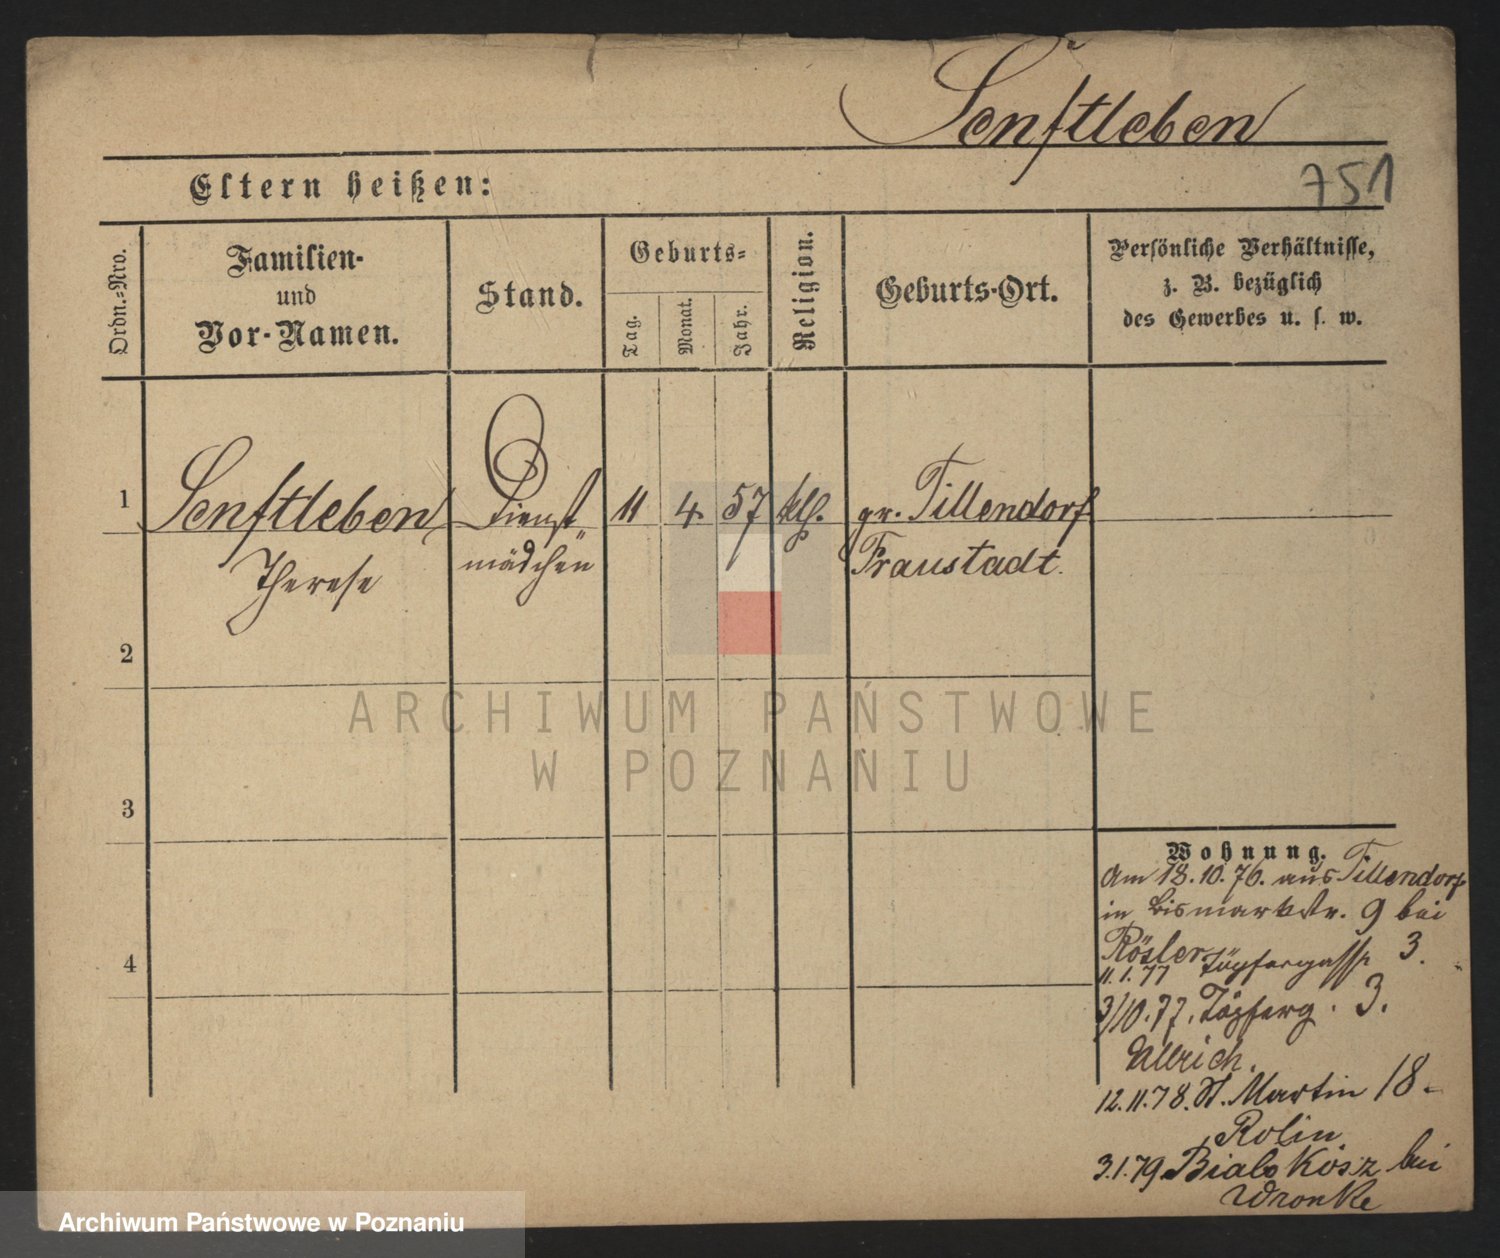 Senftleben
751
Eltern heißen:
Ordn.-Nro.
Familien-
und
Vor-Namen.
Stand.
Geburts-
Tag.
Monat.
Jahr.
Religion.
Geburts-Ort.
Persönliche Verhältnisse,
z. B. bezüglich
des Gewerbes u. s. w.
1
Senftleben
Therese
Dienst-
mädchen
11
4.
57
kth.
gr. Tillendorf
Fraustadt.
2
3
4
Wohnung.
Am 18.10.76. aus Tillendorf
in Bismarkstr. 9 bei
Rösler
11.1.77 Töpfergasse 3.
3/10.77. Töpferg. 3.
Ullrich.
12.11.78. St. Martin 18-
Rolin
3.1.79 Bialokosz bei
Wronke
ARCHIWUM PAŃSTWOWE
W POZNANIU
Archiwum Państwowe w Poznaniu